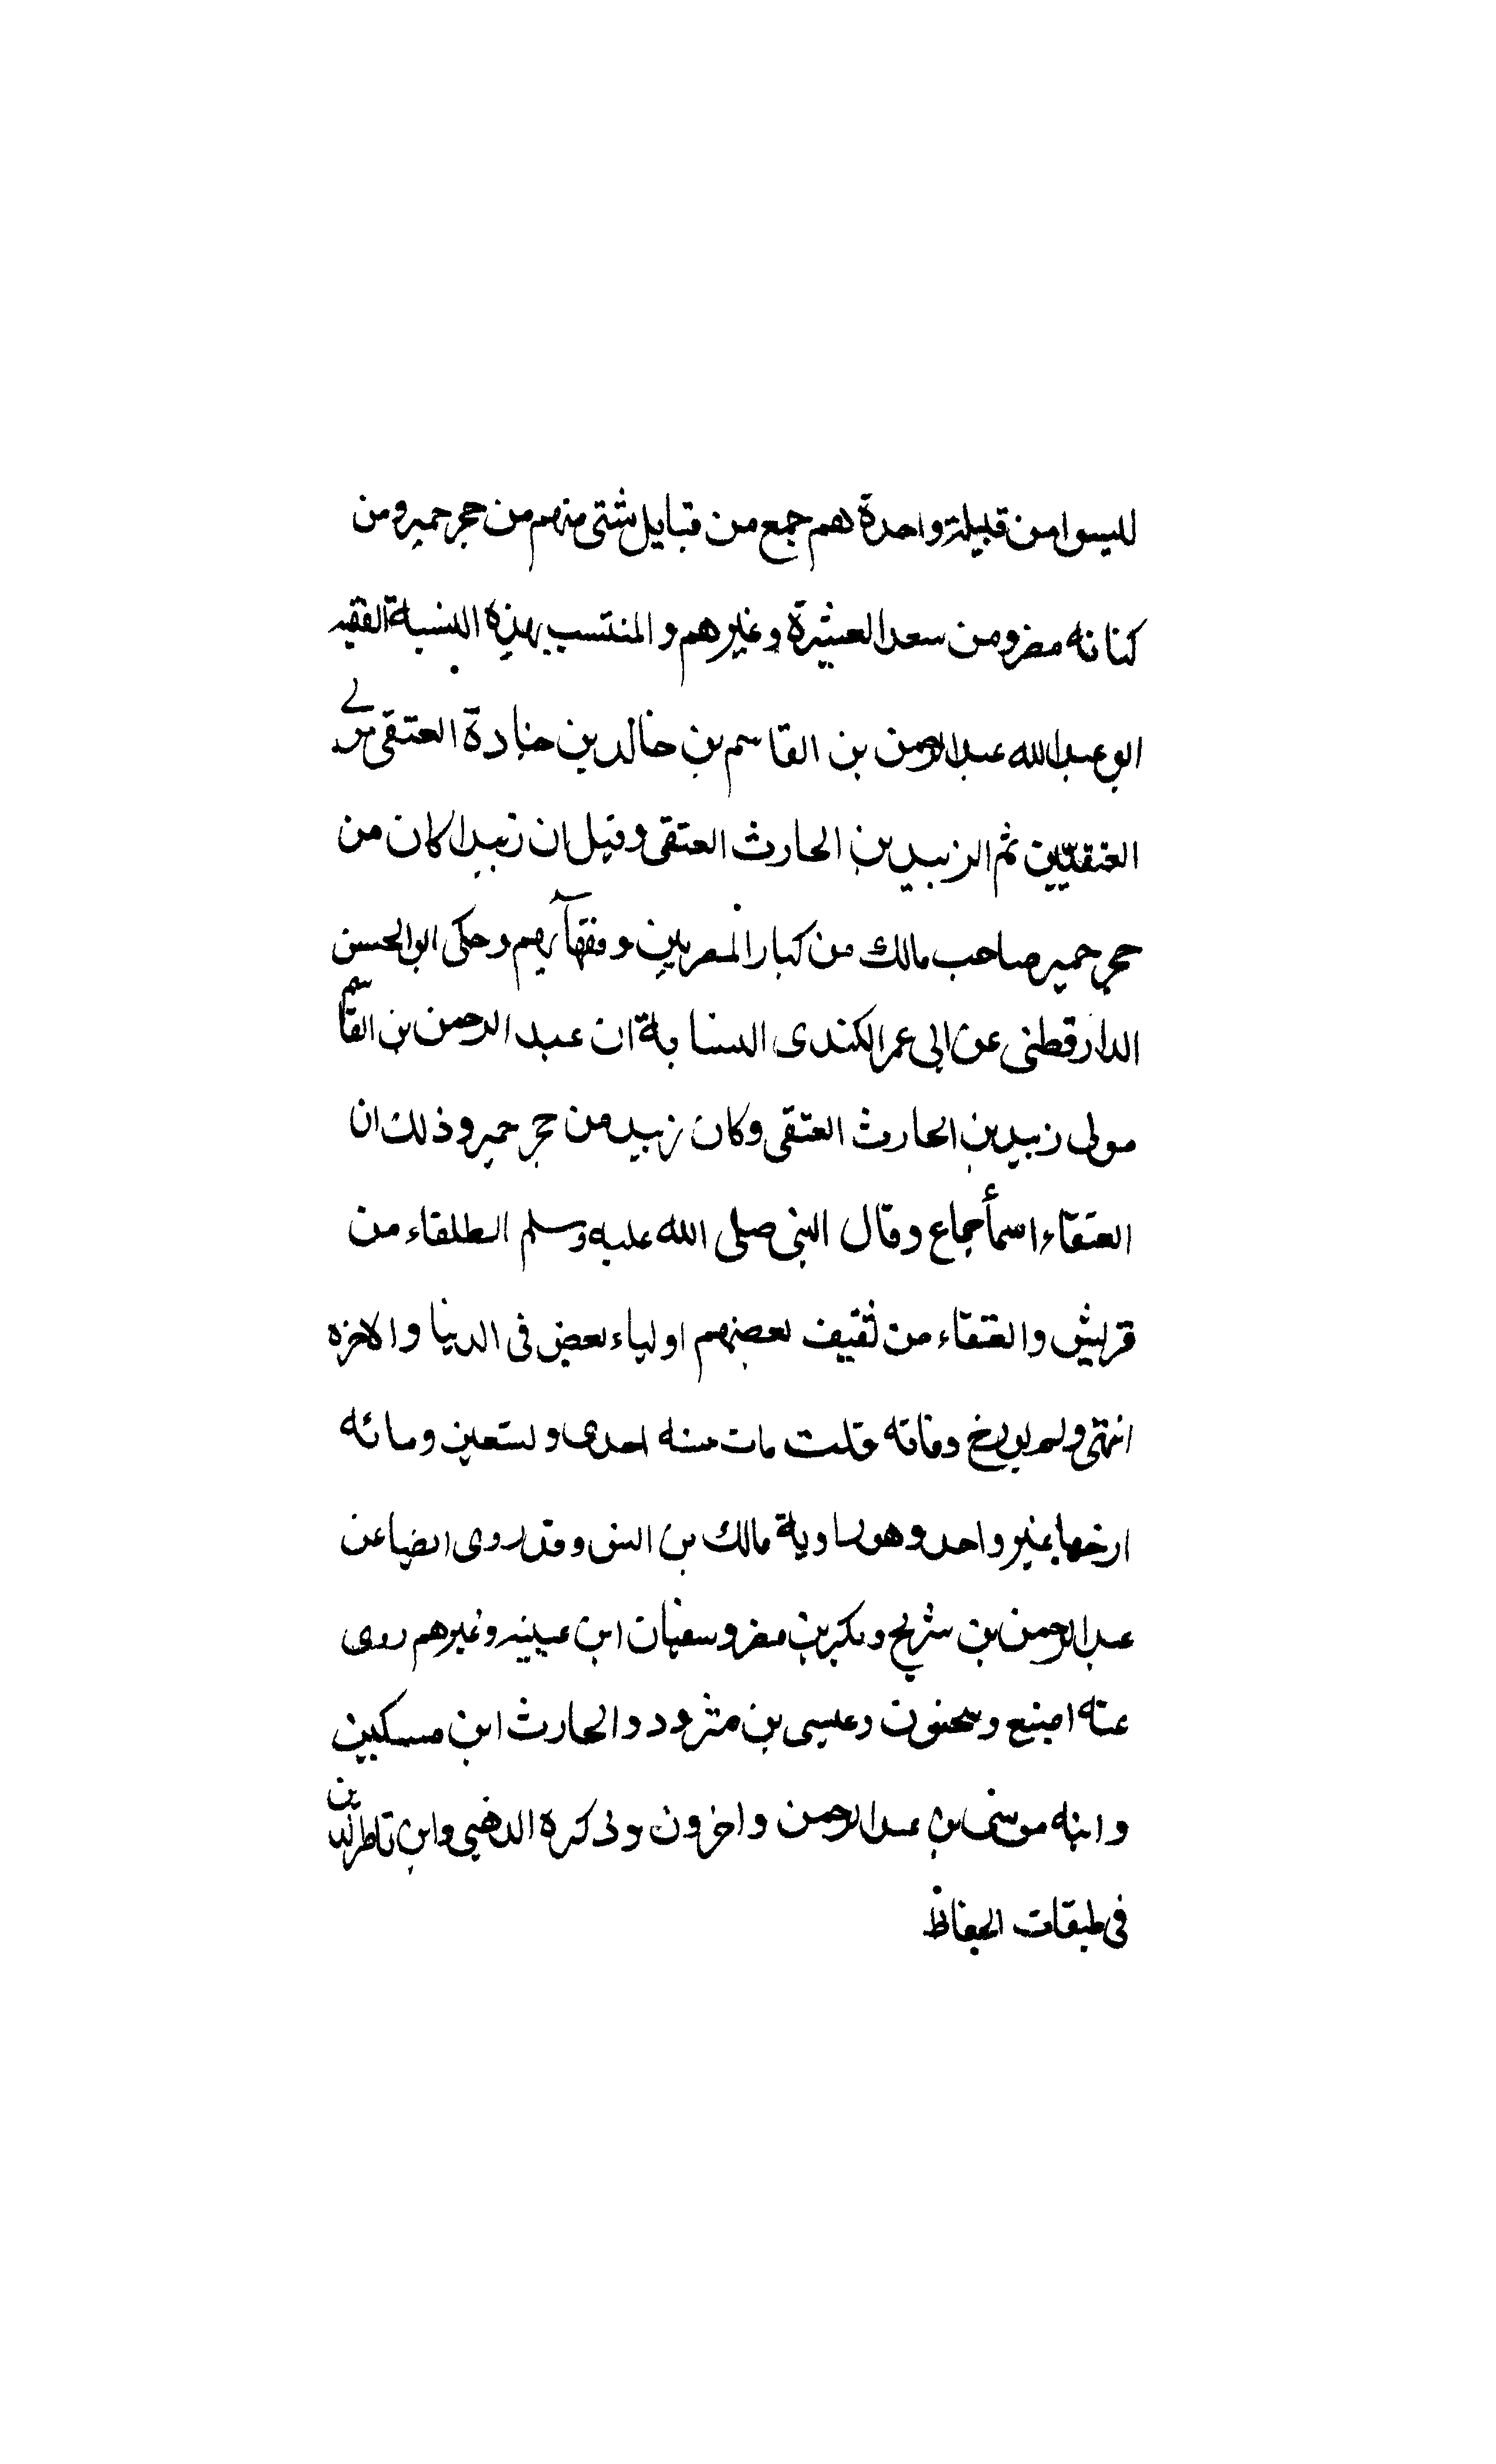 ليسوا من قبيلة واحدة هم جمع من قبايل شتى منهم من حجر حمير ومن
كنانه مضر ومن سعد العشيرة وغيرهم والمنتسب بهذه النسبة الفقيه
ابو عبد الله عبد الرحمن بن القاسم بن خالد بن جنادة العتقى مولى
العتقيين ثم الزبيد بن الحارث العتقى وقيل ان زبيدا كان من
حجر حمير صاحب مالك من كبار المصريين وفقهآيهم وحكى ابو الحسن
الدارقطنى عن ابى عمر الكندى النسابة ان عبد الرحمن بن القاسم
مولى زبيد بن الحارث العتقى وكان زبيد من حجر حمير وذلك ان
العتقاء اسماء جماع وقال النبى صلى الله عليه وسلم الطلقاء من
قريش والعتقاء من ثقيف بعضهم اولياء بعض فى الدنيا والاخره
انتهى ولم يورخ وفاته قلت مات سنه احدى وتسعين ومائه
ارخها غير واحد وهو راوية مالك بن انس وقد روى ايضا عن
عبد الرحمن بن شريح وبكر بن مضر وسفيان ابن عيينه وغيرهم روى
عنه اصبغ وسحنون وعيسى بن مثرود والحارث ابن مسكين
وابنه موسى بن عبد الرحمن واخرون وذكره الذهبى وابن ناصر الدين
فى طبقات الحفاظ